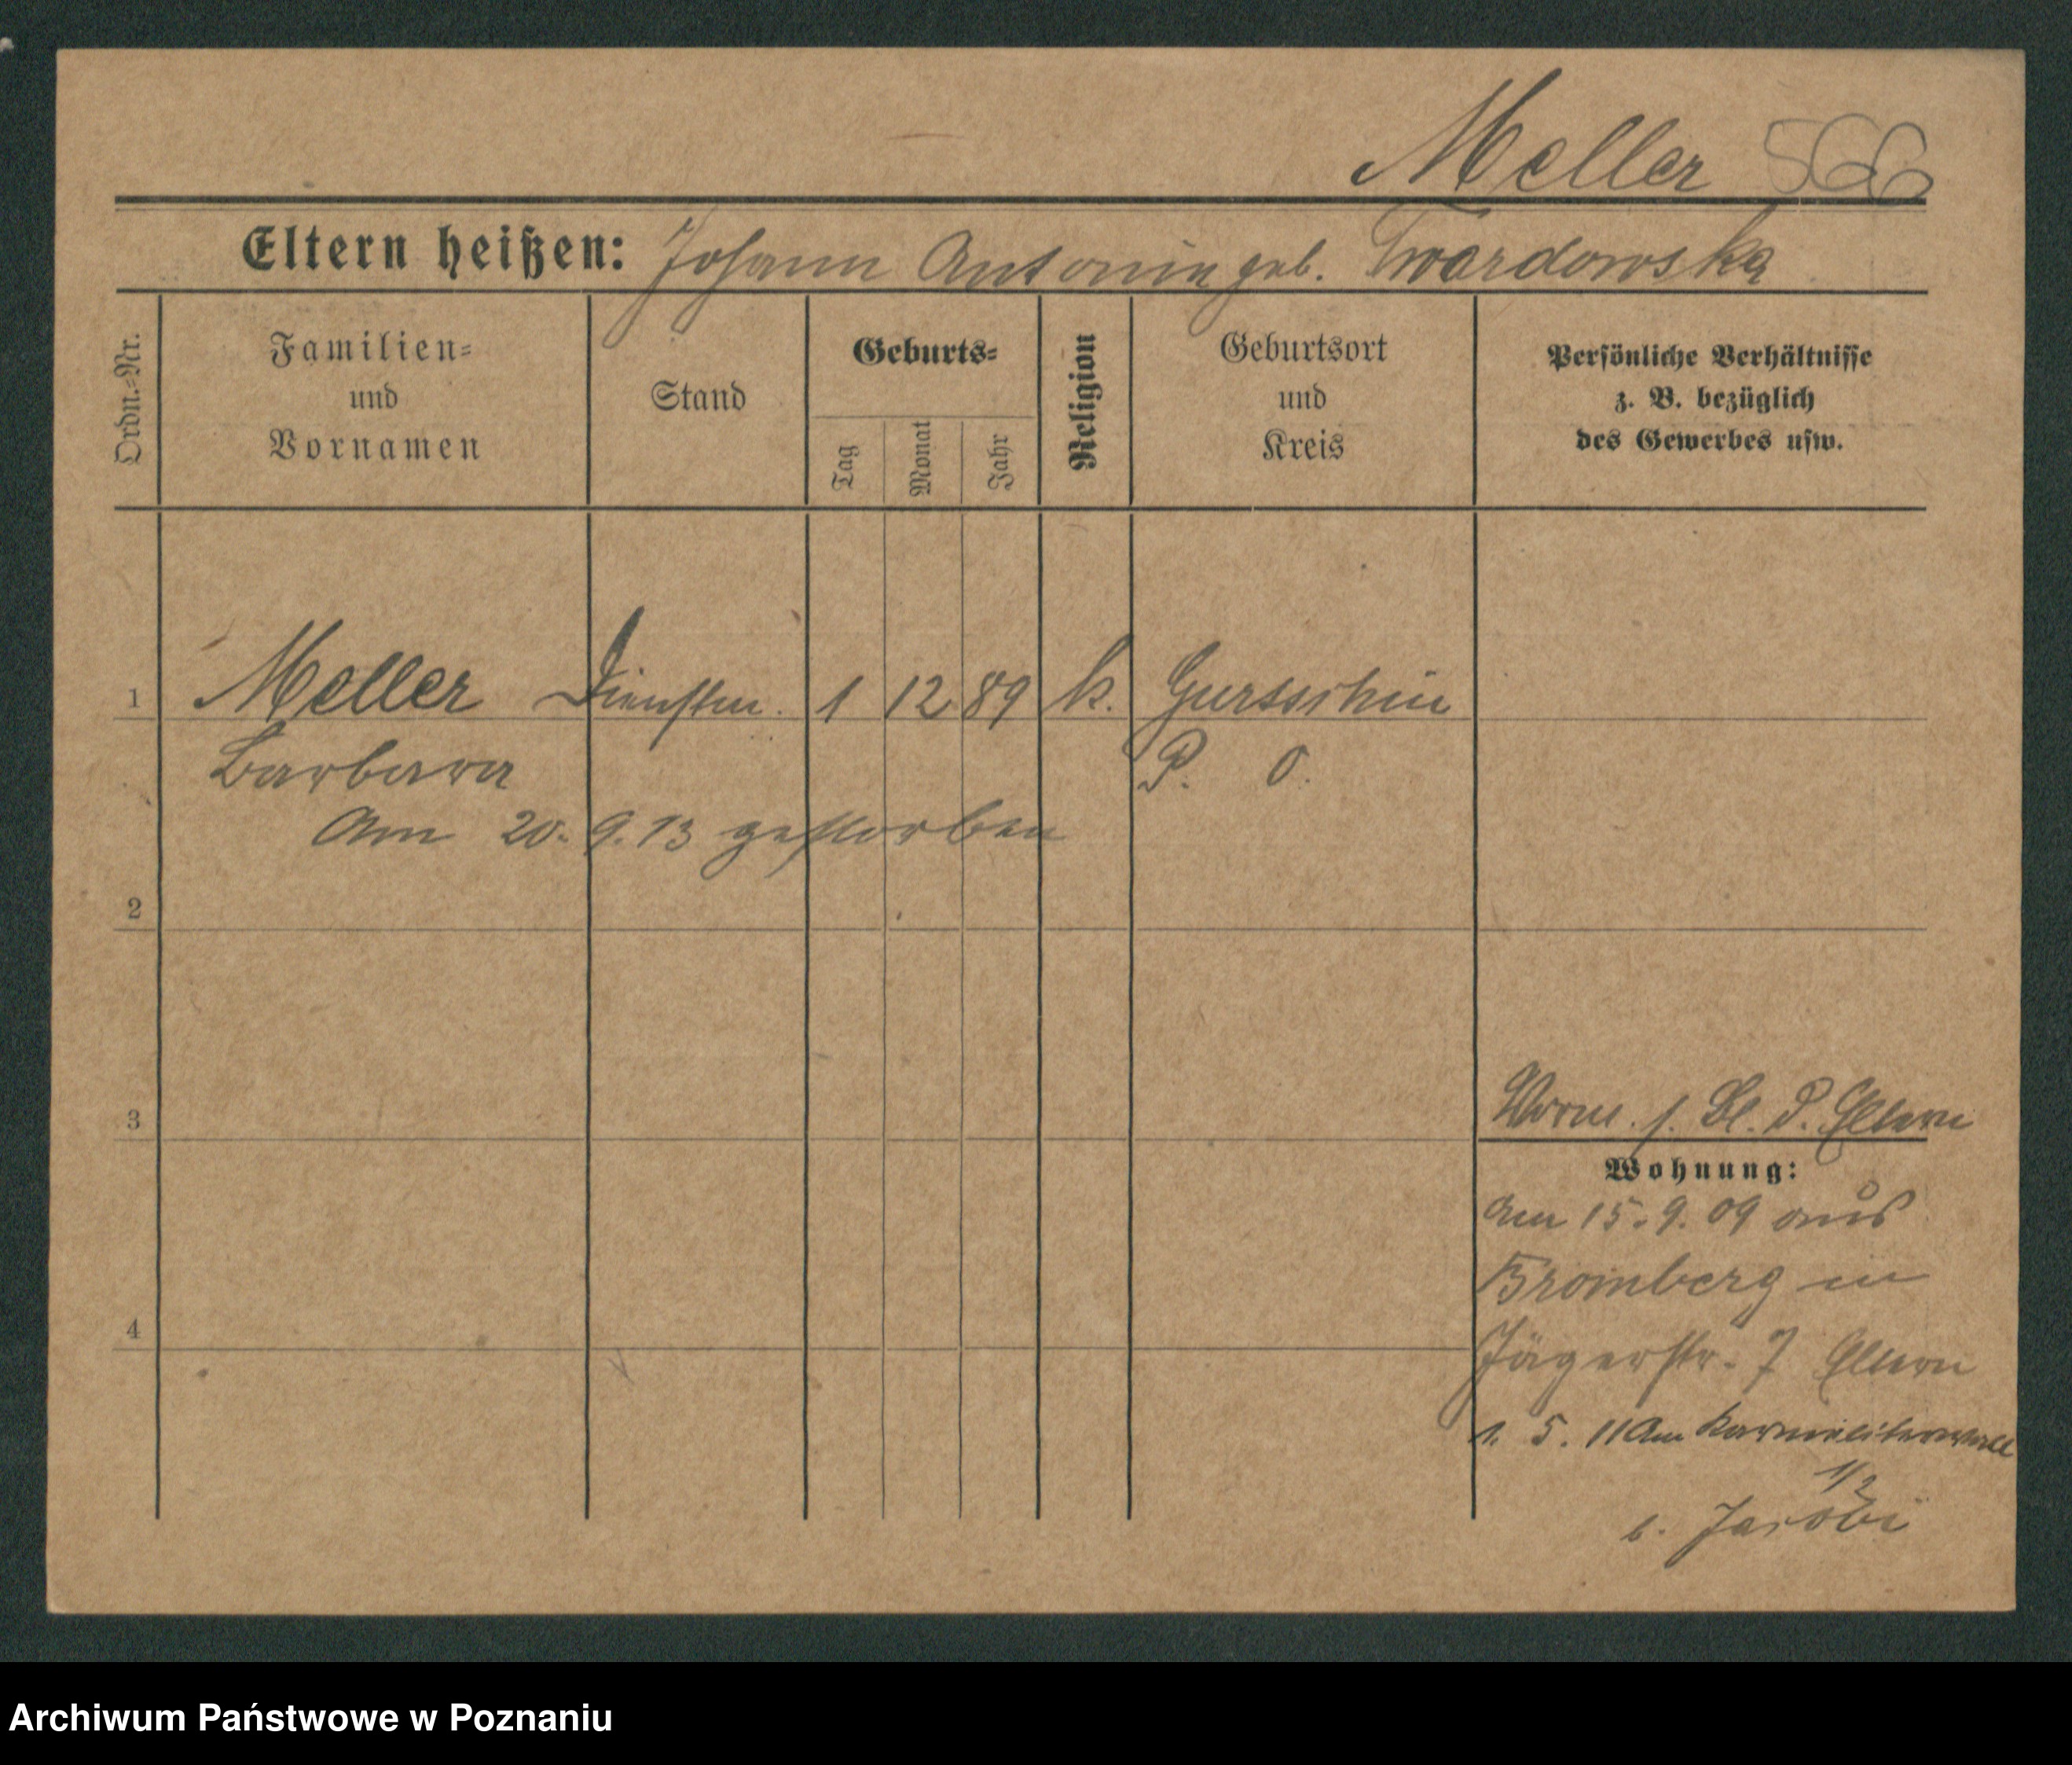 Meller 566
Eltern heißen: Johann Antonie geb. Twardowska
Ordn.-Nr.
Familien-
und
Vornamen
Stand
Geburts-
Tag
Monat
Jahr
Religion
Geburtsort
und
Kreis
Persönliche Verhältnisse
z. B. bezüglich
des Gewerbes usw.
1 Meller Dienstm. 1 12 89 k.
Barbara P. O.
Am 20. 9. 13 gestorben
2
3 Vorm. s. Bl. d. Eltern
Wohnung:
Am 15. 9. 09 aus
Bromberg in
4 Jägerstr. 7 Eltern
1. 5. 11 Am Karmeliterwall
1/2
b. Jacobi
Archiwum Państwowe w Poznaniu